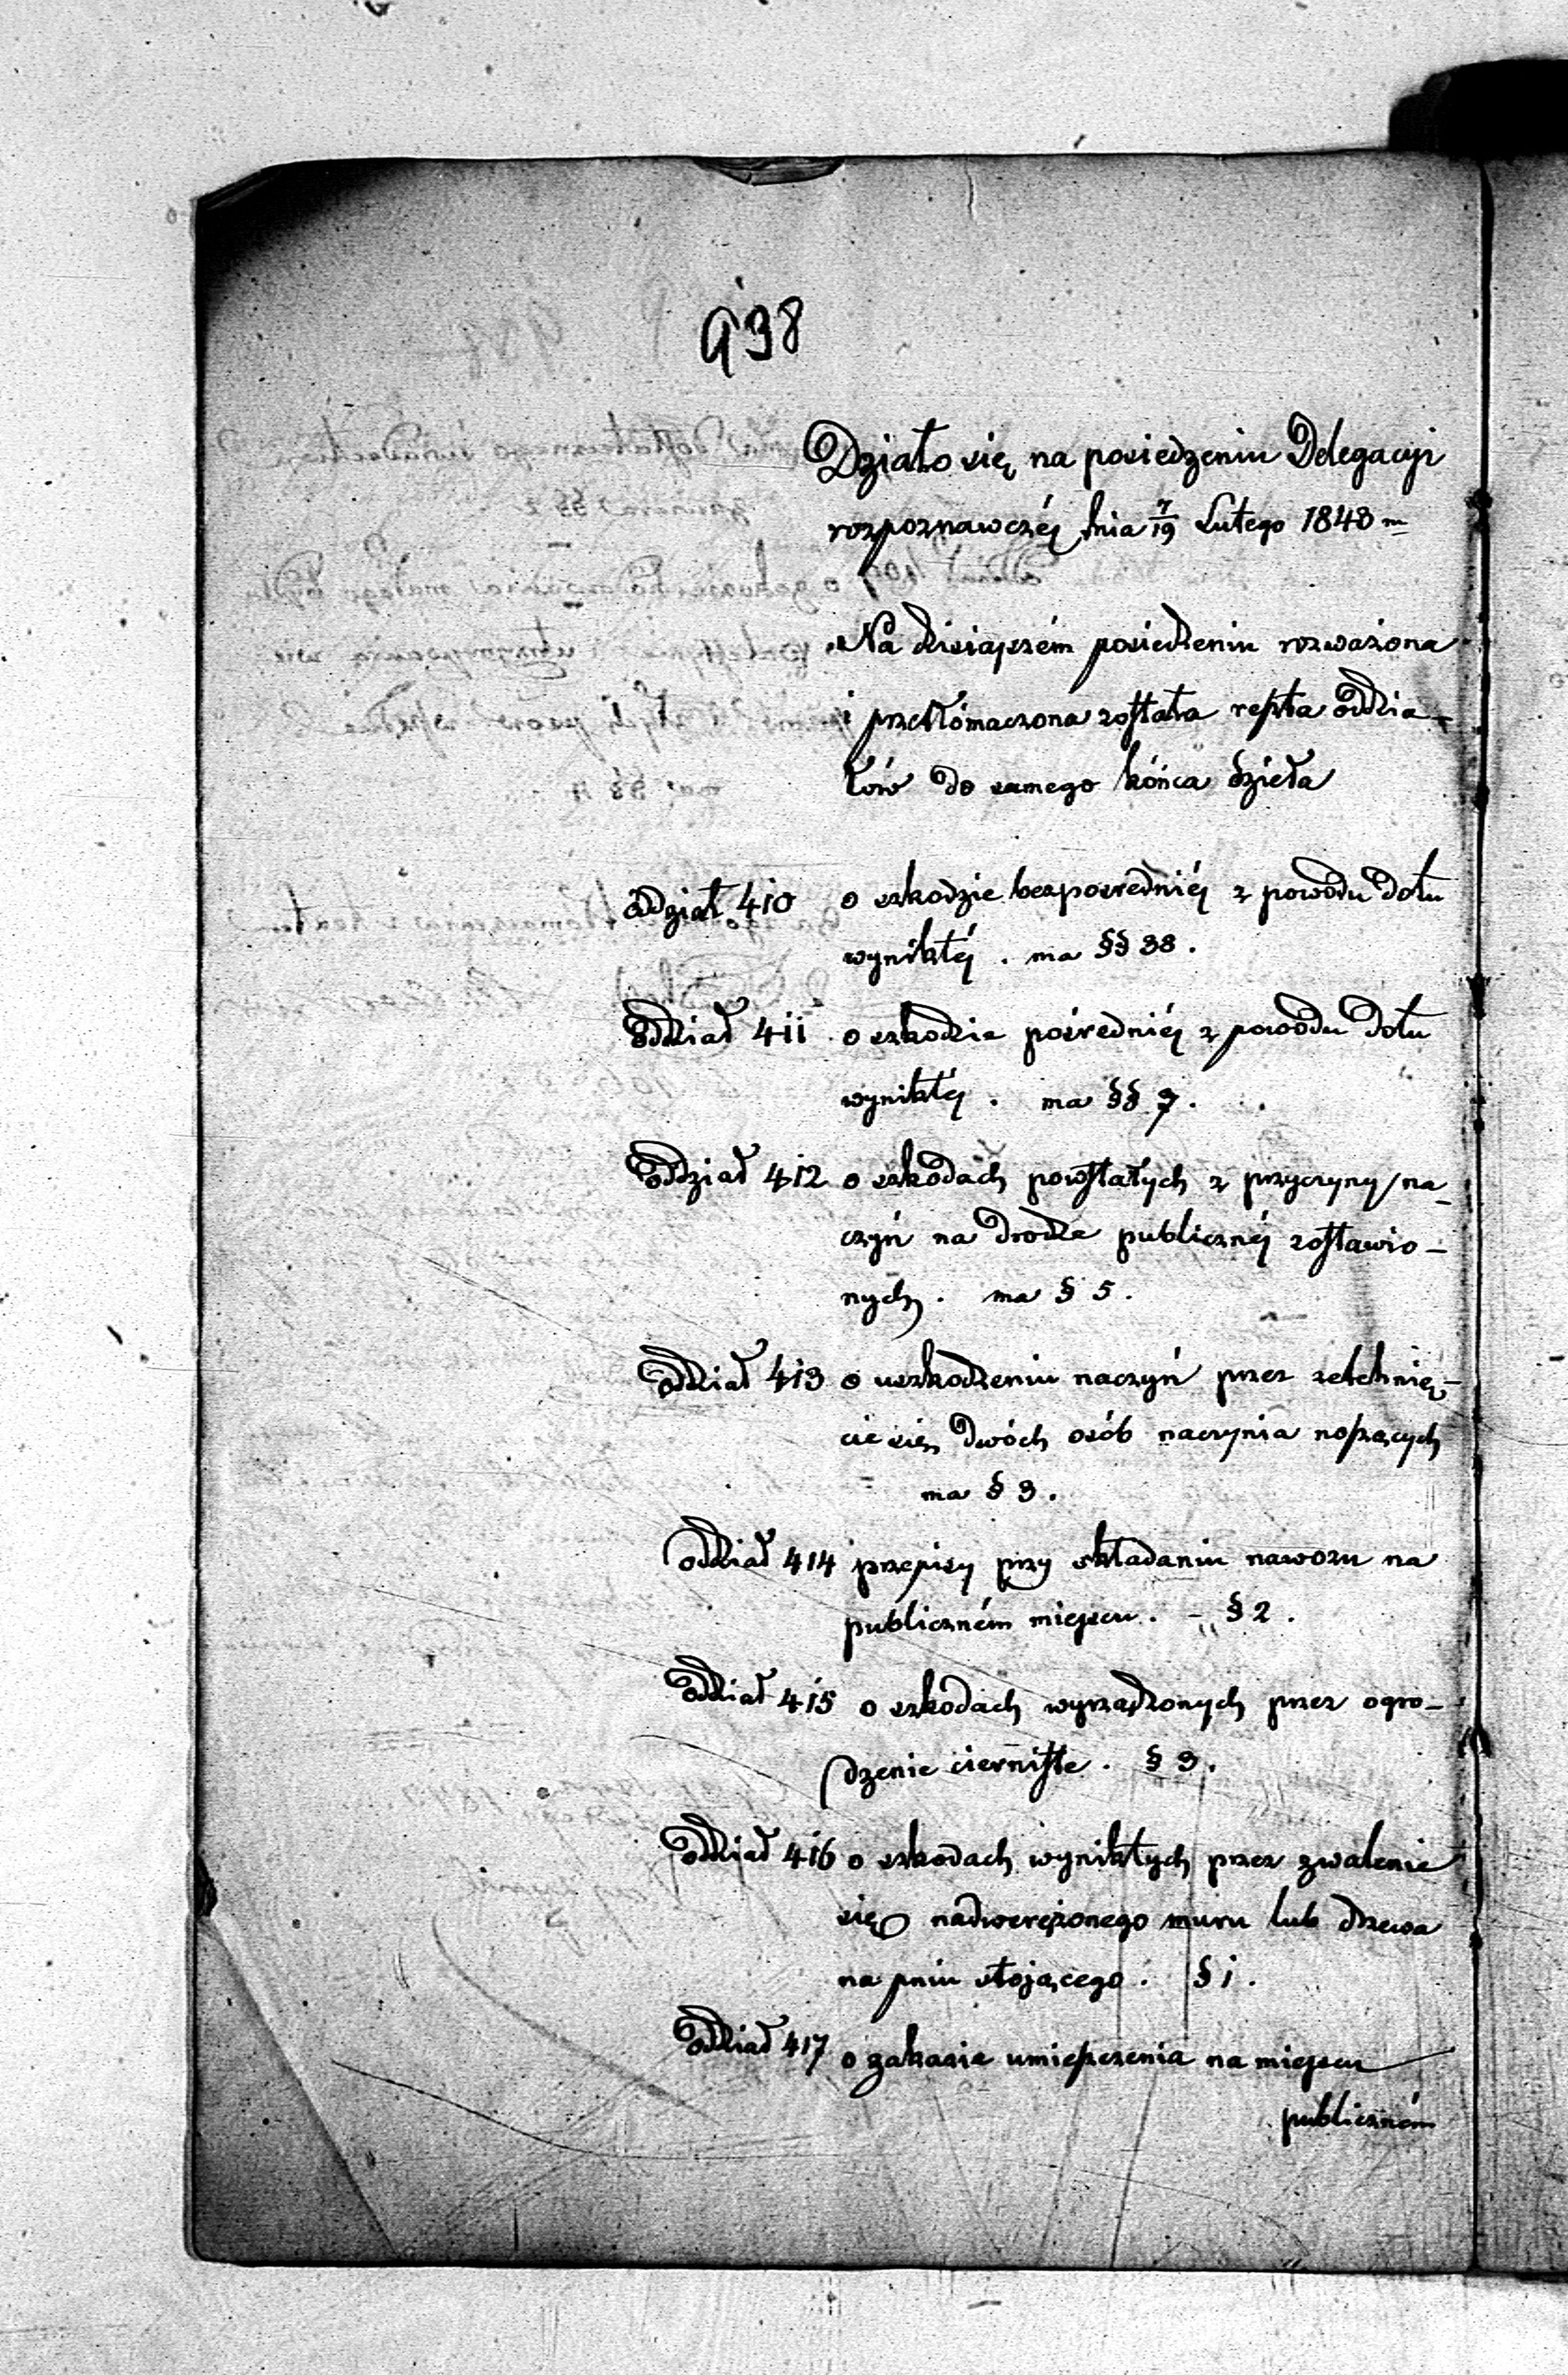 938
Działo się na posiedzeniu Delegacyi
rozpoznawczéj dnia 7/19 Lutego 1848 r.
Na disiajszém posiedzeniu rozważona
i przetłómaczona została reszta oddzia-
łów do samego końca dzieła
oddział 410 o szkodzie bezpośredniéj z powodu dołu
wynikłéj . ma §§ 38 .
oddział 411 o szkodzie pośredniéj z powodu dołu
wynikłéj . ma §§ 7 .
oddział 412 o szkodach powstałych z przyczyny na-
czyń na drodze publicznéj zostawio-
nych . ma § 5 .
oddział 413 o uszkodzeniu naczyń przez zetchnię-
cie się dwóch osób naczynia noszących
ma § 3 .
oddział 414 przepisy przy składaniu nawozu na
publiczném miejscu . - „ § 2 .
oddział 415 o szkodach wyrządzonych przez ogro-
dzenie cierniste . § 3 .
oddział 416 o szkodach wynikłych przez zwalenie
się nadwerężonego muru lub drzewa
na pniu stojącego . § 1 .
oddział 417 o zakazie umieszczenia na miejscu
publiczném